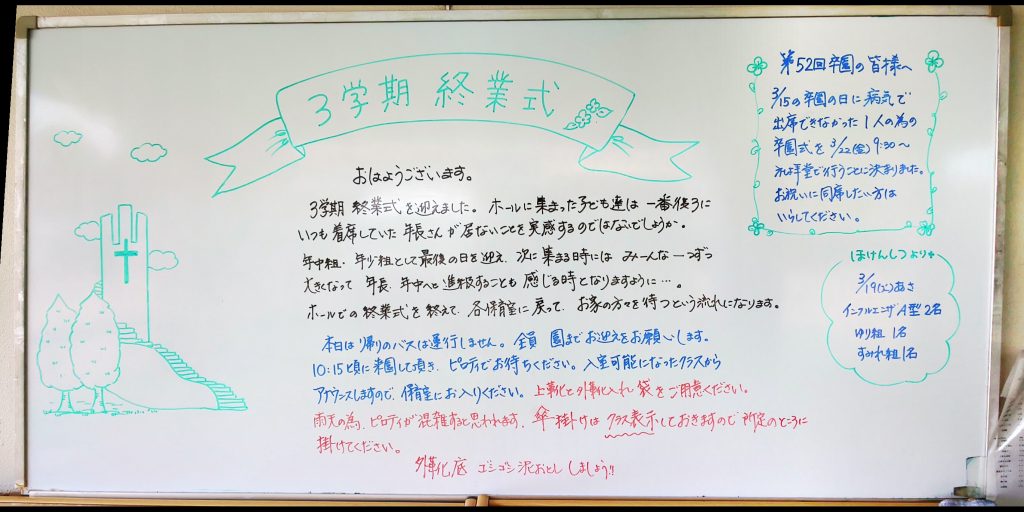 3学期 終業式
おはようございます。
3学期 終業式を迎えました。ホールに集まった子ども達は 一番後ろに
いつも着席していた 年長さんが居ないことを実感するのではないでしょうか。
年中組・年少組として最後の日を迎え、次に集まる時には みーんな一つずつ
大きくなって 年長、年中へと進級することも 感じる時となりますように…。
ホールでの 終業式を終えて、各保育室に戻って、お家の方々を待つという流れになります。
本日は帰りのバスは運行しません。全員 園までお迎えをお願いします。
10:15頃に来園して頂き、ピロティでお待ちください。入室可能になったクラスから
アナウンスしますので、保育室にお入りください。上靴と外靴入れ袋をご用意ください。
雨天の為、ピロティが混雑すると思われます。傘掛けは クラス表示しておきますので 所定のところに
掛けてください。
外靴底 ゴシゴシ泥おとし しましょう!!
第52回卒園の皆様へ
3/15の卒園の日に病気で
出席できなかった1人の為の
卒園式を 3/22(金) 9:30～
礼拝堂で行うことに決まりました。
お祝いに同席したい方は
いらしてください。
ほけんしつより
3/19(火)あさ
インフルエンザA型2名
ゆり組1名
すみれ組1名